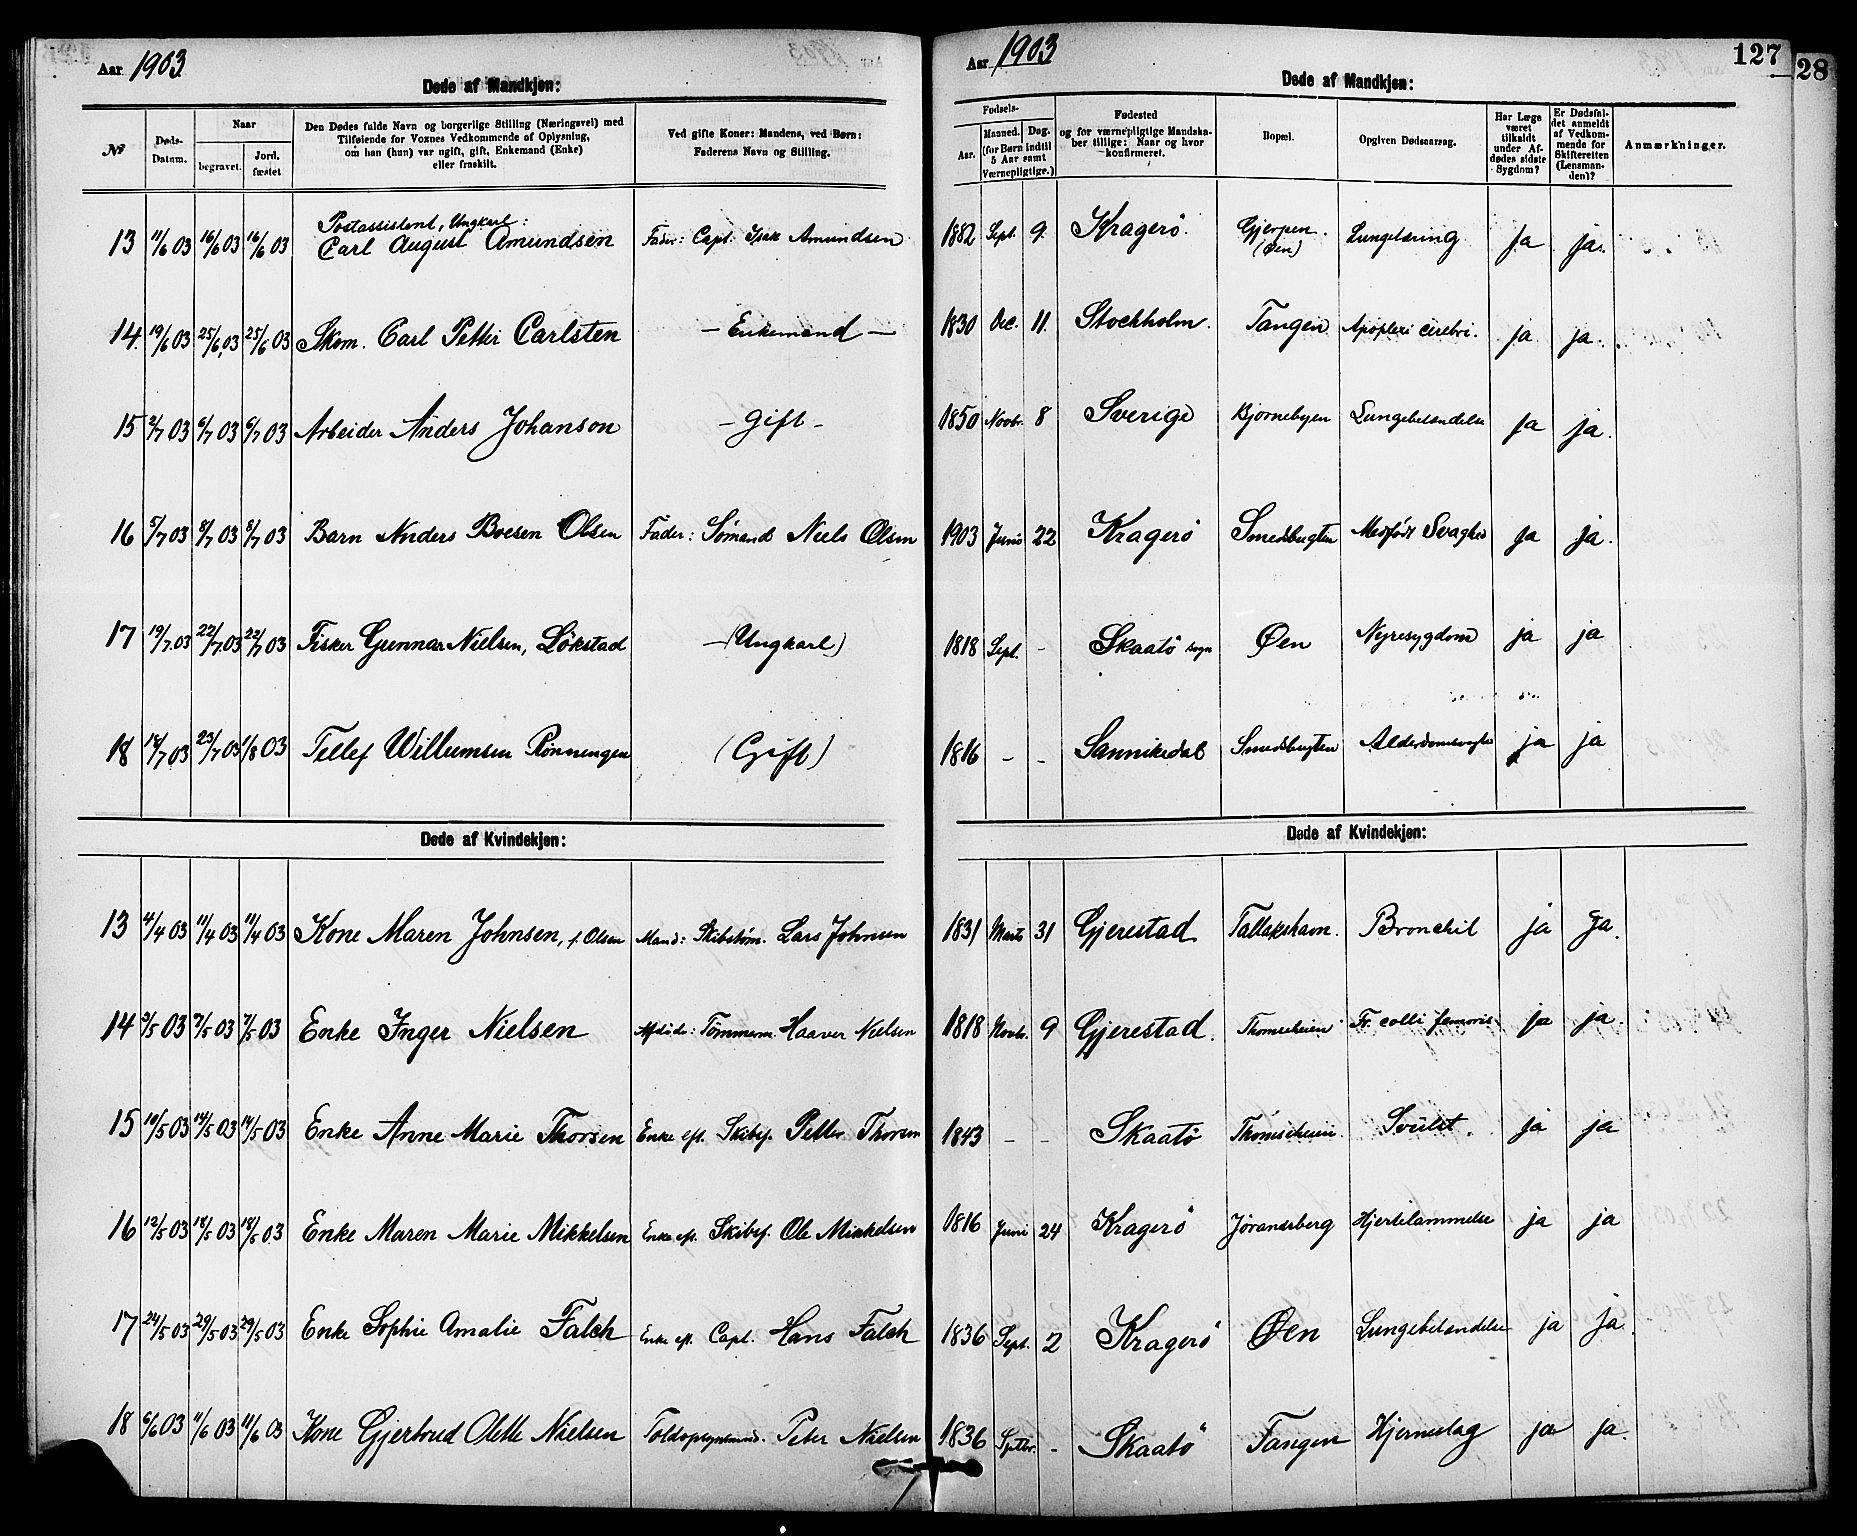 Aar 1903
Døde af Mandkjøn:
№
Døds-Datum.
Naar
begravet.
Jord. fæstet
Den Dødes fulde Navn og borgerlige Stilling (Næringsvei) med
Tilføiende for Voxnes Vedkommende af Oplysning,
om han (hun) var ugift, gift, Enkemand (Enke)
eller fraskilt.
Ved gifte Koner: Mandens, ved Børn:
Faderens Navn og Stilling.
Aar 1903
127
28
Døde af Mandkjøn:
Fødsels-
Aar.
Maaned. Dag.
(for Børn indtil
5 Aar samt
Værnepligtige.)
Fødested
og for værnepligtige Mandska-
ber tillige: Naar og hvor
konfirmeret.
Bopæl.
Opgiven Dødsaarsag.
Har Læge
været
tilkaldt
under Af-
dødes sidste
Sygdom?
Er Dødsfal-
det anmeldt
af Vedkom-
mende for
Skifteretten
(Lensman-
den)?
Anmærkninger.
13 11/6 03 16/6 03 16/6 03 Postassistent, Ungkarl: Carl August Amundsen Fader: Capt. Isak Amundsen 1882 Sept. 9 Kragerö. Gjerpen. (Øen) Lungetæring Ja ja.
14. 19/6 03 25/6 03 25/6 03 Skom. Carl Petter Carlsten - Enkemand - 1830 Dec. 11. Stockholm. Tangen Apoplexi cerebri. ja ja.
15 2/7 03 6/7 03 6/7 03 Arbeider Anders Johanson - Gift - 1850 Novbr. 8 Sverige Bjørnebyen Lungebetændelse Ja ja.
16 5/7 03 8/7 03 8/7 03 Barn Anders Boesen Olsen Fader: Sømand Niels Olsen 1903 Juni 22 Kragerö Smedsbugten Medfødt Svaghed Ja ja.
17 19/7.03 22/7.03 22/7 03 Fisker Gunnar Nielsen, Lökstad - (Ungkarl) 1818 Sept. - Skaatö sogn Øen Nyresygdom ja ja
18 18/7 03 23/7 03 1/8 03 Tellef Willumsen Rønningen (Gift) 1816 - - Sannikedal Smedsbugten ja ja
Døde af Kvindekjøn:
Døde af Kvindekjøn:
13 4/4 03 11/4 03 11/4 03 Kone Maren Johnsen, f. Olsen Mand: Skibstøm. Lars Johnsen 1831 Marts 31 Gjerestad Tallakshavn. Bronchit ja Ja.
14 2/5 03 7/5 03 7/5 03 Enke Inger Nielsen Afdøde: Tömmerm. Haaver Nielsen 1818 Novbr. 9 Gjerestad. Thomsheien Fr. colli femoris ja ja
15 10/5 03 14/5 03 14/5 03 Enke Anne Marie Thorsen Enke eft. Skibsf. Petter Thorsen 1843 - - Skaatö Thomseheien. Svulst. ja ja
16 12/5 03 18/5 03 18/5 03 Enke Maren Marie Mikkelsen Enke eft. Skibsf. Ole Mikkelsen 1816 Juni 24 Kragerö Jørandsberg Hjertelammelse ja ja
17 24/5 03 29/5 03 29/5 03 Enke Sophie Amalie Falch Enke eft. Capt. Hans Falch 1836 Sept. 2 Kragerö Øen Lungebetændelse ja ja.
18 6/6 03 11/6 03 11/6 03 Kone Gjertrud Olette Nielsen Toldopsynsmd. Peter Nielsen 1836 Sptbr. - Skaatö Tangen Hjerneslag ja ja.